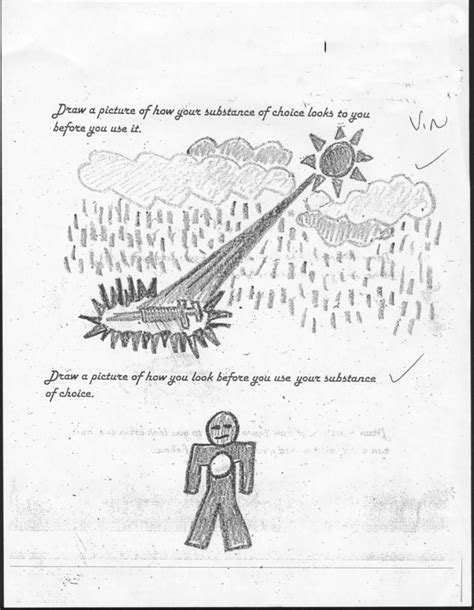 Draw a picture of how your substance of choice looks to you
before you use it.
V.N
Draw a picture of how you look before you use your substance
of choice.